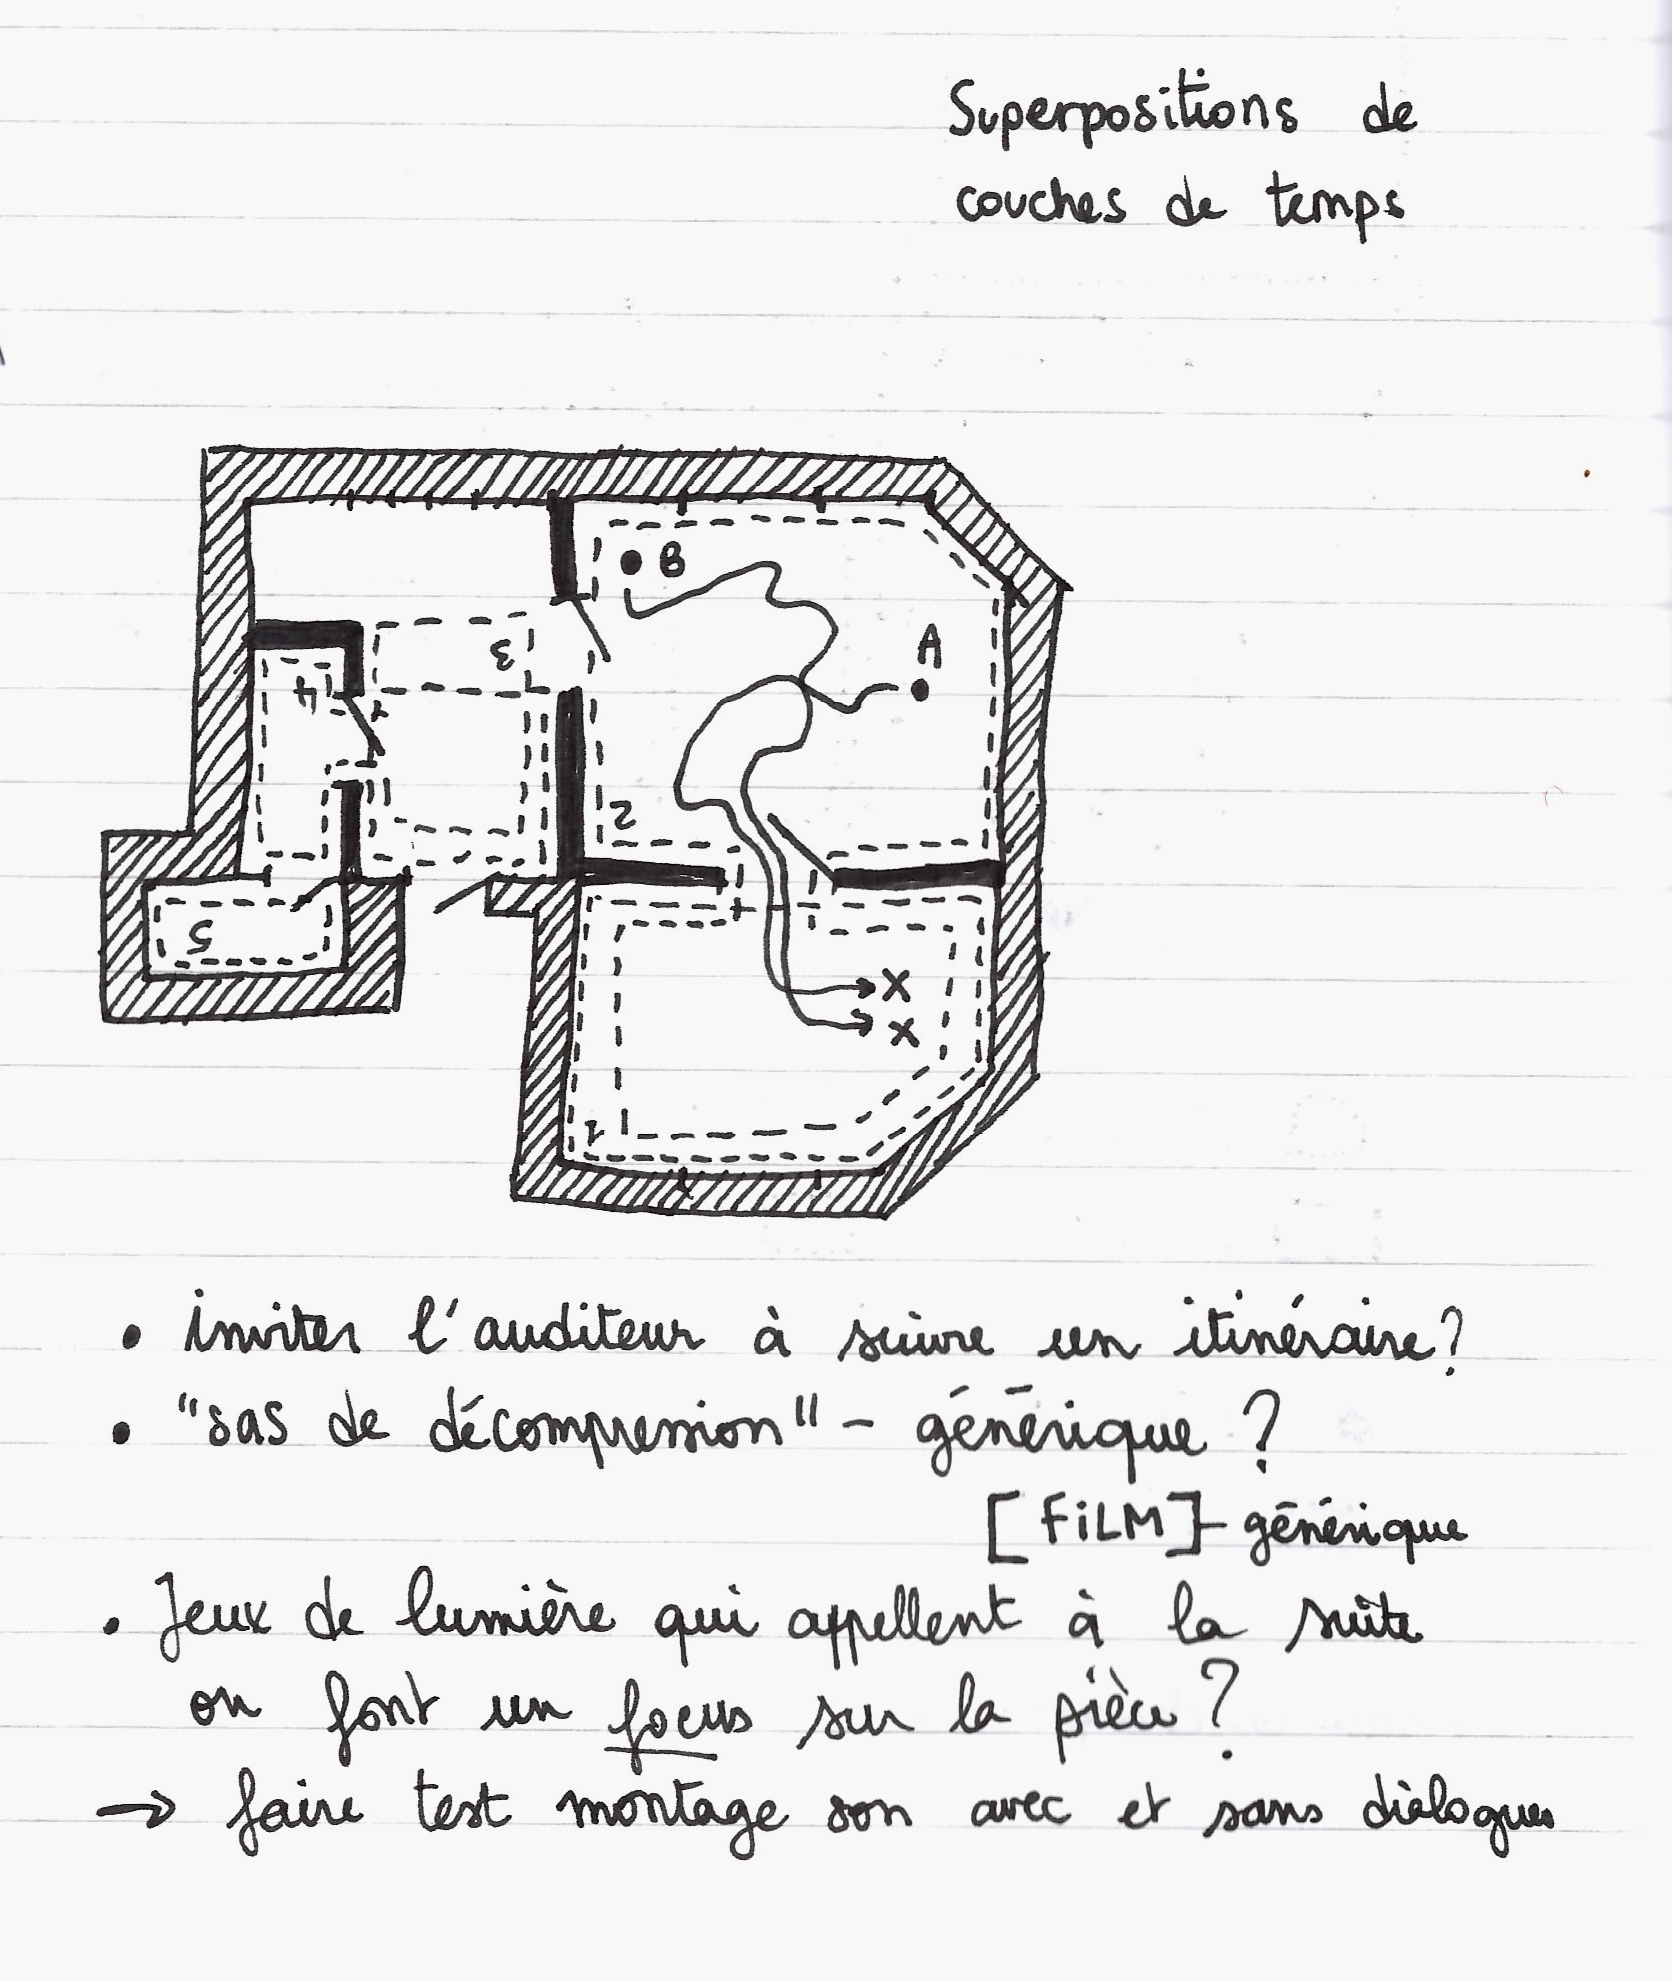 Superpositions de
couches de temps
B
A
3
4
2
5
X
X
1
• inviter l'auditeur à suivre un itinéraire?
• "sas de décompression" - générique ?
[FiLM]- générique
• Jeux de lumière qui appellent à la suite
ou font un focus sur la pièce ?
→ faire test montage son avec et sans dialogues